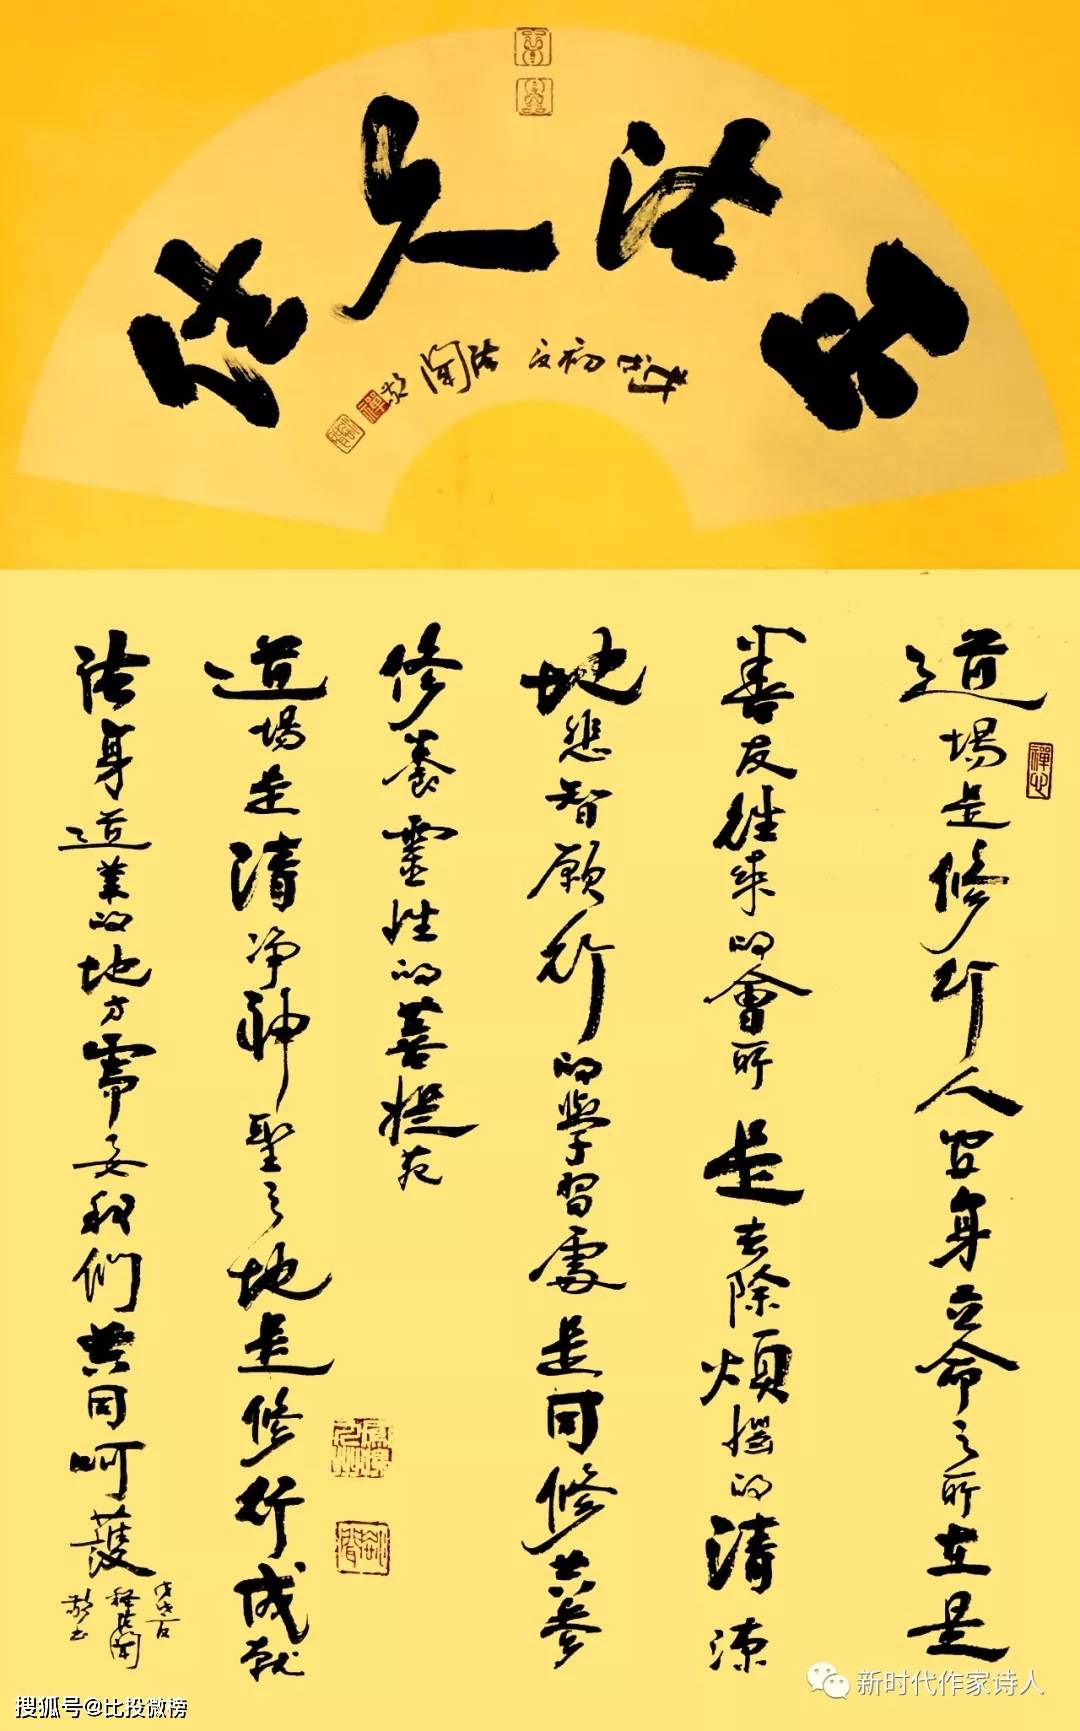 正法久住
戊戌初夏 法闻
禪心
道場是修行人安身立命之所在是
善友往来的會所是去除煩惱的清凉
地悲智願行的學習處是同修共参
修養靈性的菩提苑
道場是清净神聖之地是修行成就
法身道業的地方需要我們共同呵護
戊戌夏
释法闻
敬书
新时代作家诗人
搜狐号@比投微榜